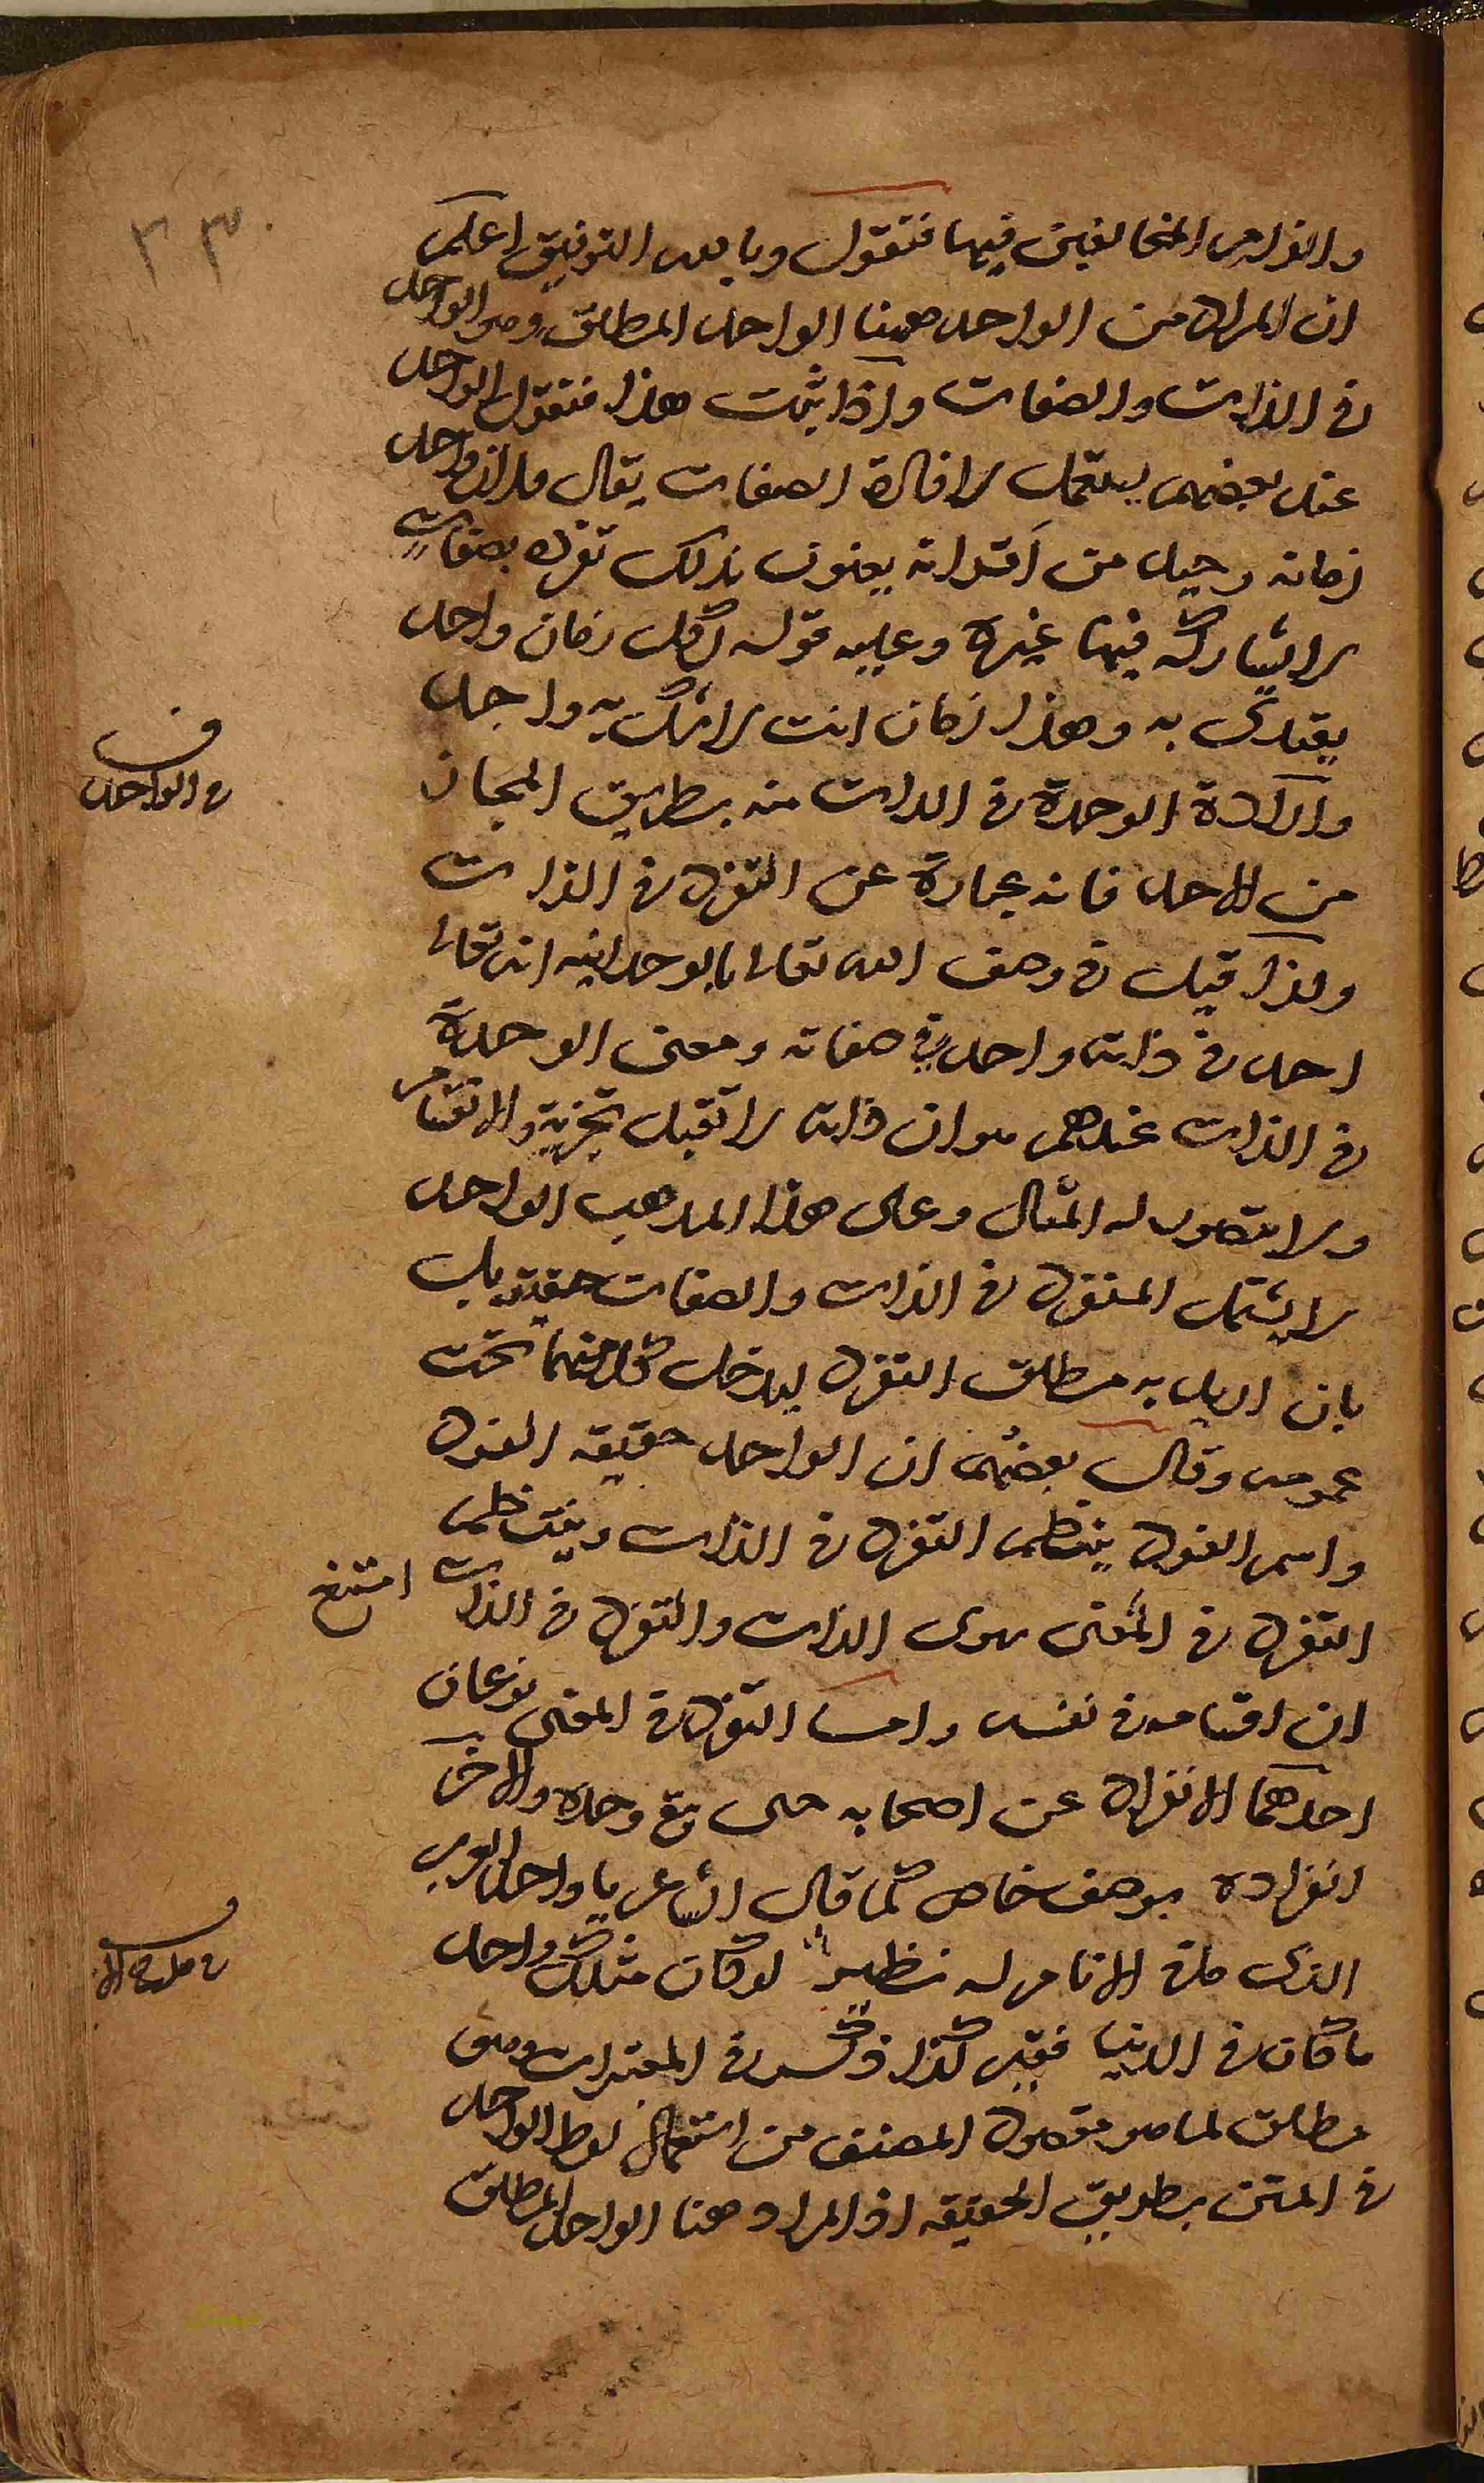 ٣٣٠
والزام المخالفين فيها فنقول وبالله التوفيق اعلم
ان المراد من الواحد ههنا الواحد المطلق وهو الواحد
في الذات والصفات واذا ثبت هذا فنقول الواحد
عند بعضهم يستعمل لافادة الصفات يقال فلان واحد
زمانه وحيد من اقرانه يعنون بذلك تفرده بصفات
لا يشاركه فيها غيره وعليه قوله لكل زمان واحد
يقتدى به وهذا زمان انت لا شك واحد
وارادة الوحدة في الذات منه بطريق المجاز
من الاحد فانه عبارة عن التفرد في الذات
ولذا قيل في وصف الله تعالى بالوحدانيه انه تعالى
احد في ذاته واحد في صفاته ومعنى الوحدة
في الذات عندهم هو ان ذاته لا تقبل تجزية والانقسام
ولا يتصور له المثال وعلى هذا المذهب الواحد
لا يشمل المتفرد في الذات والصفات حقيقة بل
بان اريد به مطلق التفرد ليدخل كل منهما تحت
عمومه وقال بعضهم ان الواحد حقيقه الفرد
واسم الفرد ينتظم التفرد في الذات وينتظم
التفرد في المعنى سوى الذات والتفرد في الذات امتنع
ان اقسامه في نفسه واما التفرد في المعنى نوعان
احدهما الانفراد عن اصحابه حتى بقي وحده والاخر
انفراده بوصف خاص كما قال الشاعر يا واحد العرب
الذي ما في الانام له نظير لو كان مثلك واحد
ما كان في الدنيا فقير كذا ذكر في المعتبرات وهو
مطلق لما هو مقصود المصنف من استعمال لفظ الواحد
في المتن بطريق الحقيقه اذ المراد هنا الواحد المطلق
ف
في الواحد
ف